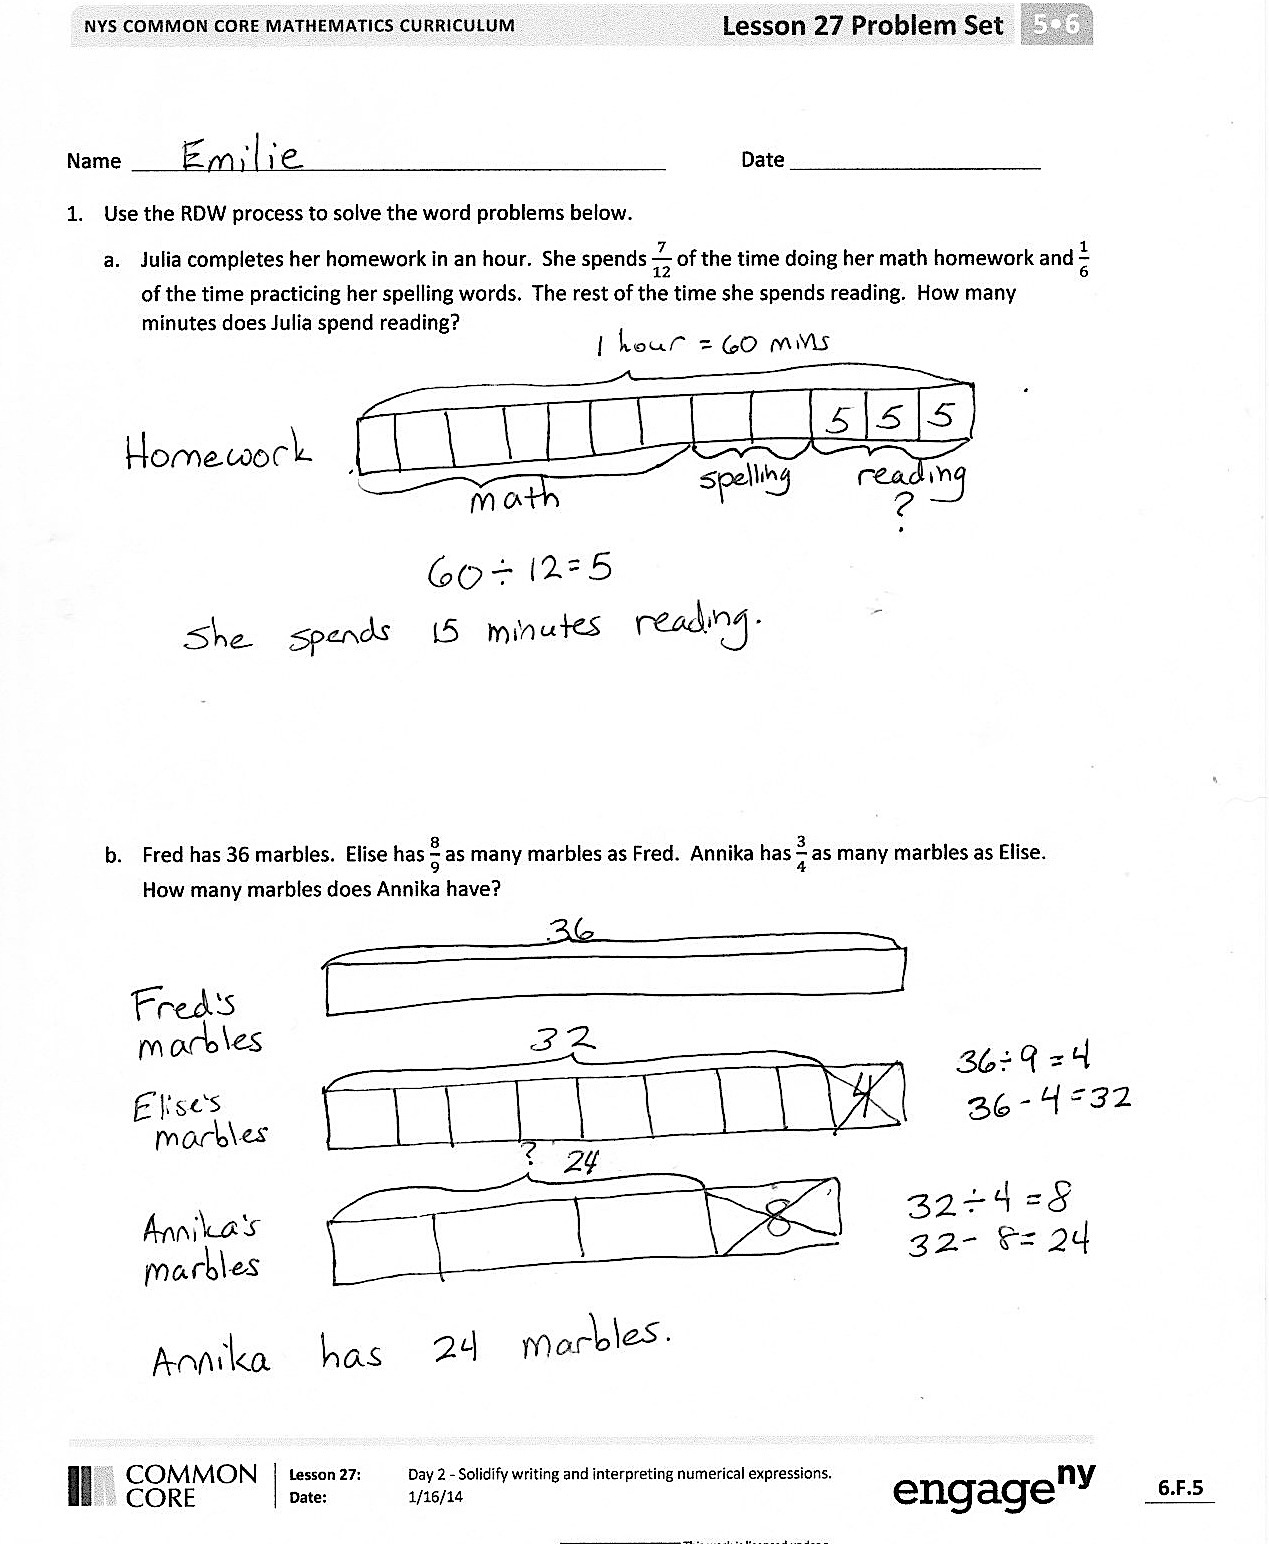 NYS COMMON CORE MATHEMATICS CURRICULUM Lesson 27 Problem Set 5•6
Name Emilie Date
1. Use the RDW process to solve the word problems below.
a. Julia completes her homework in an hour. She spends 7/12 of the time doing her math homework and 1/6
of the time practicing her spelling words. The rest of the time she spends reading. How many
minutes does Julia spend reading?
1 hour = 60 mins
5 5 5
Homework
math spelling reading
?
60 ÷ 12 = 5
She spends 15 minutes reading.
b. Fred has 36 marbles. Elise has 8/9 as many marbles as Fred. Annika has 3/4 as many marbles as Elise.
How many marbles does Annika have?
36
Fred's
marbles
32
36 ÷ 9 = 4
Elise's 4
36 - 4 = 32
marbles
? 24
32 ÷ 4 = 8
Annika's 8
32 - 8 = 24
marbles
Annika has 24 marbles.
COMMON CORE
Lesson 27: Day 2 - Solidify writing and interpreting numerical expressions.
Date: 1/16/14
engageny
6.F.5